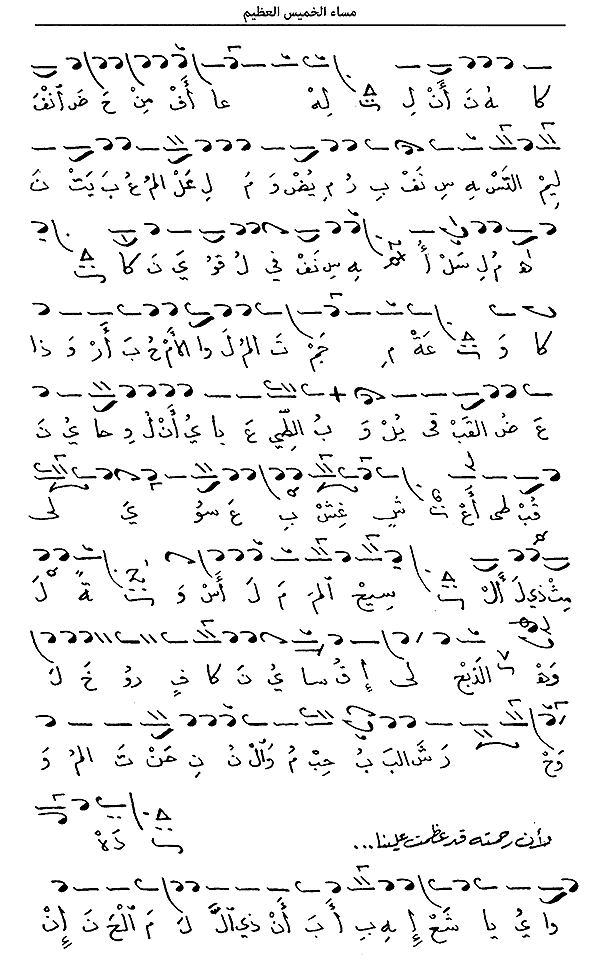 مساء الخميس العظيم
كا هُ نَ أَنْ لِ لِهْ عا أَفْ مِنْ حَ ضَ
لِيمْ التَسْ بِهِ سِ نَفْ بِ رُ مِ يُضْ وَ مَ لِ عَلْ المُ عُ بَ يَتْ نَ
هُمُ لِ سَلْ أُ بِهِ سِ نَفْ في لُ قو يَ نَ كا
كا وَ عَةْ مِ جَمْ تَ المُ لَ والأَمْ حُ بَ أَرْ وَ ذا
عَ ضُ القَبْ قي يُلْ وَ بُ الطِّي عَ با يُ أَنْ لُ وِ حا يُ نَ
قُبْ طى أَعْ شٍ غِشْ بِ عَ سو يَ لى
مِثْ ذي لَ أَلْ سيحْ المَ مَ لَ أَسْ وَ ةً لَ
وَهْ الذَبْحْ لى إِ قُ سا يُ نَ كا فٍ رو خَ كَ
وَحْ رَشَ البَ بُ حِبْ مُ وَالْ نُ نِ حَنْ تَ المُ وَ
دَهْ لأن رحمته قد عظمت علينا...
وا يُ يا شَعْ إِ بِهِ بِ أَ بَ أَنْ ذي الَّ لَ مَ الْحَ نَ إِنْ